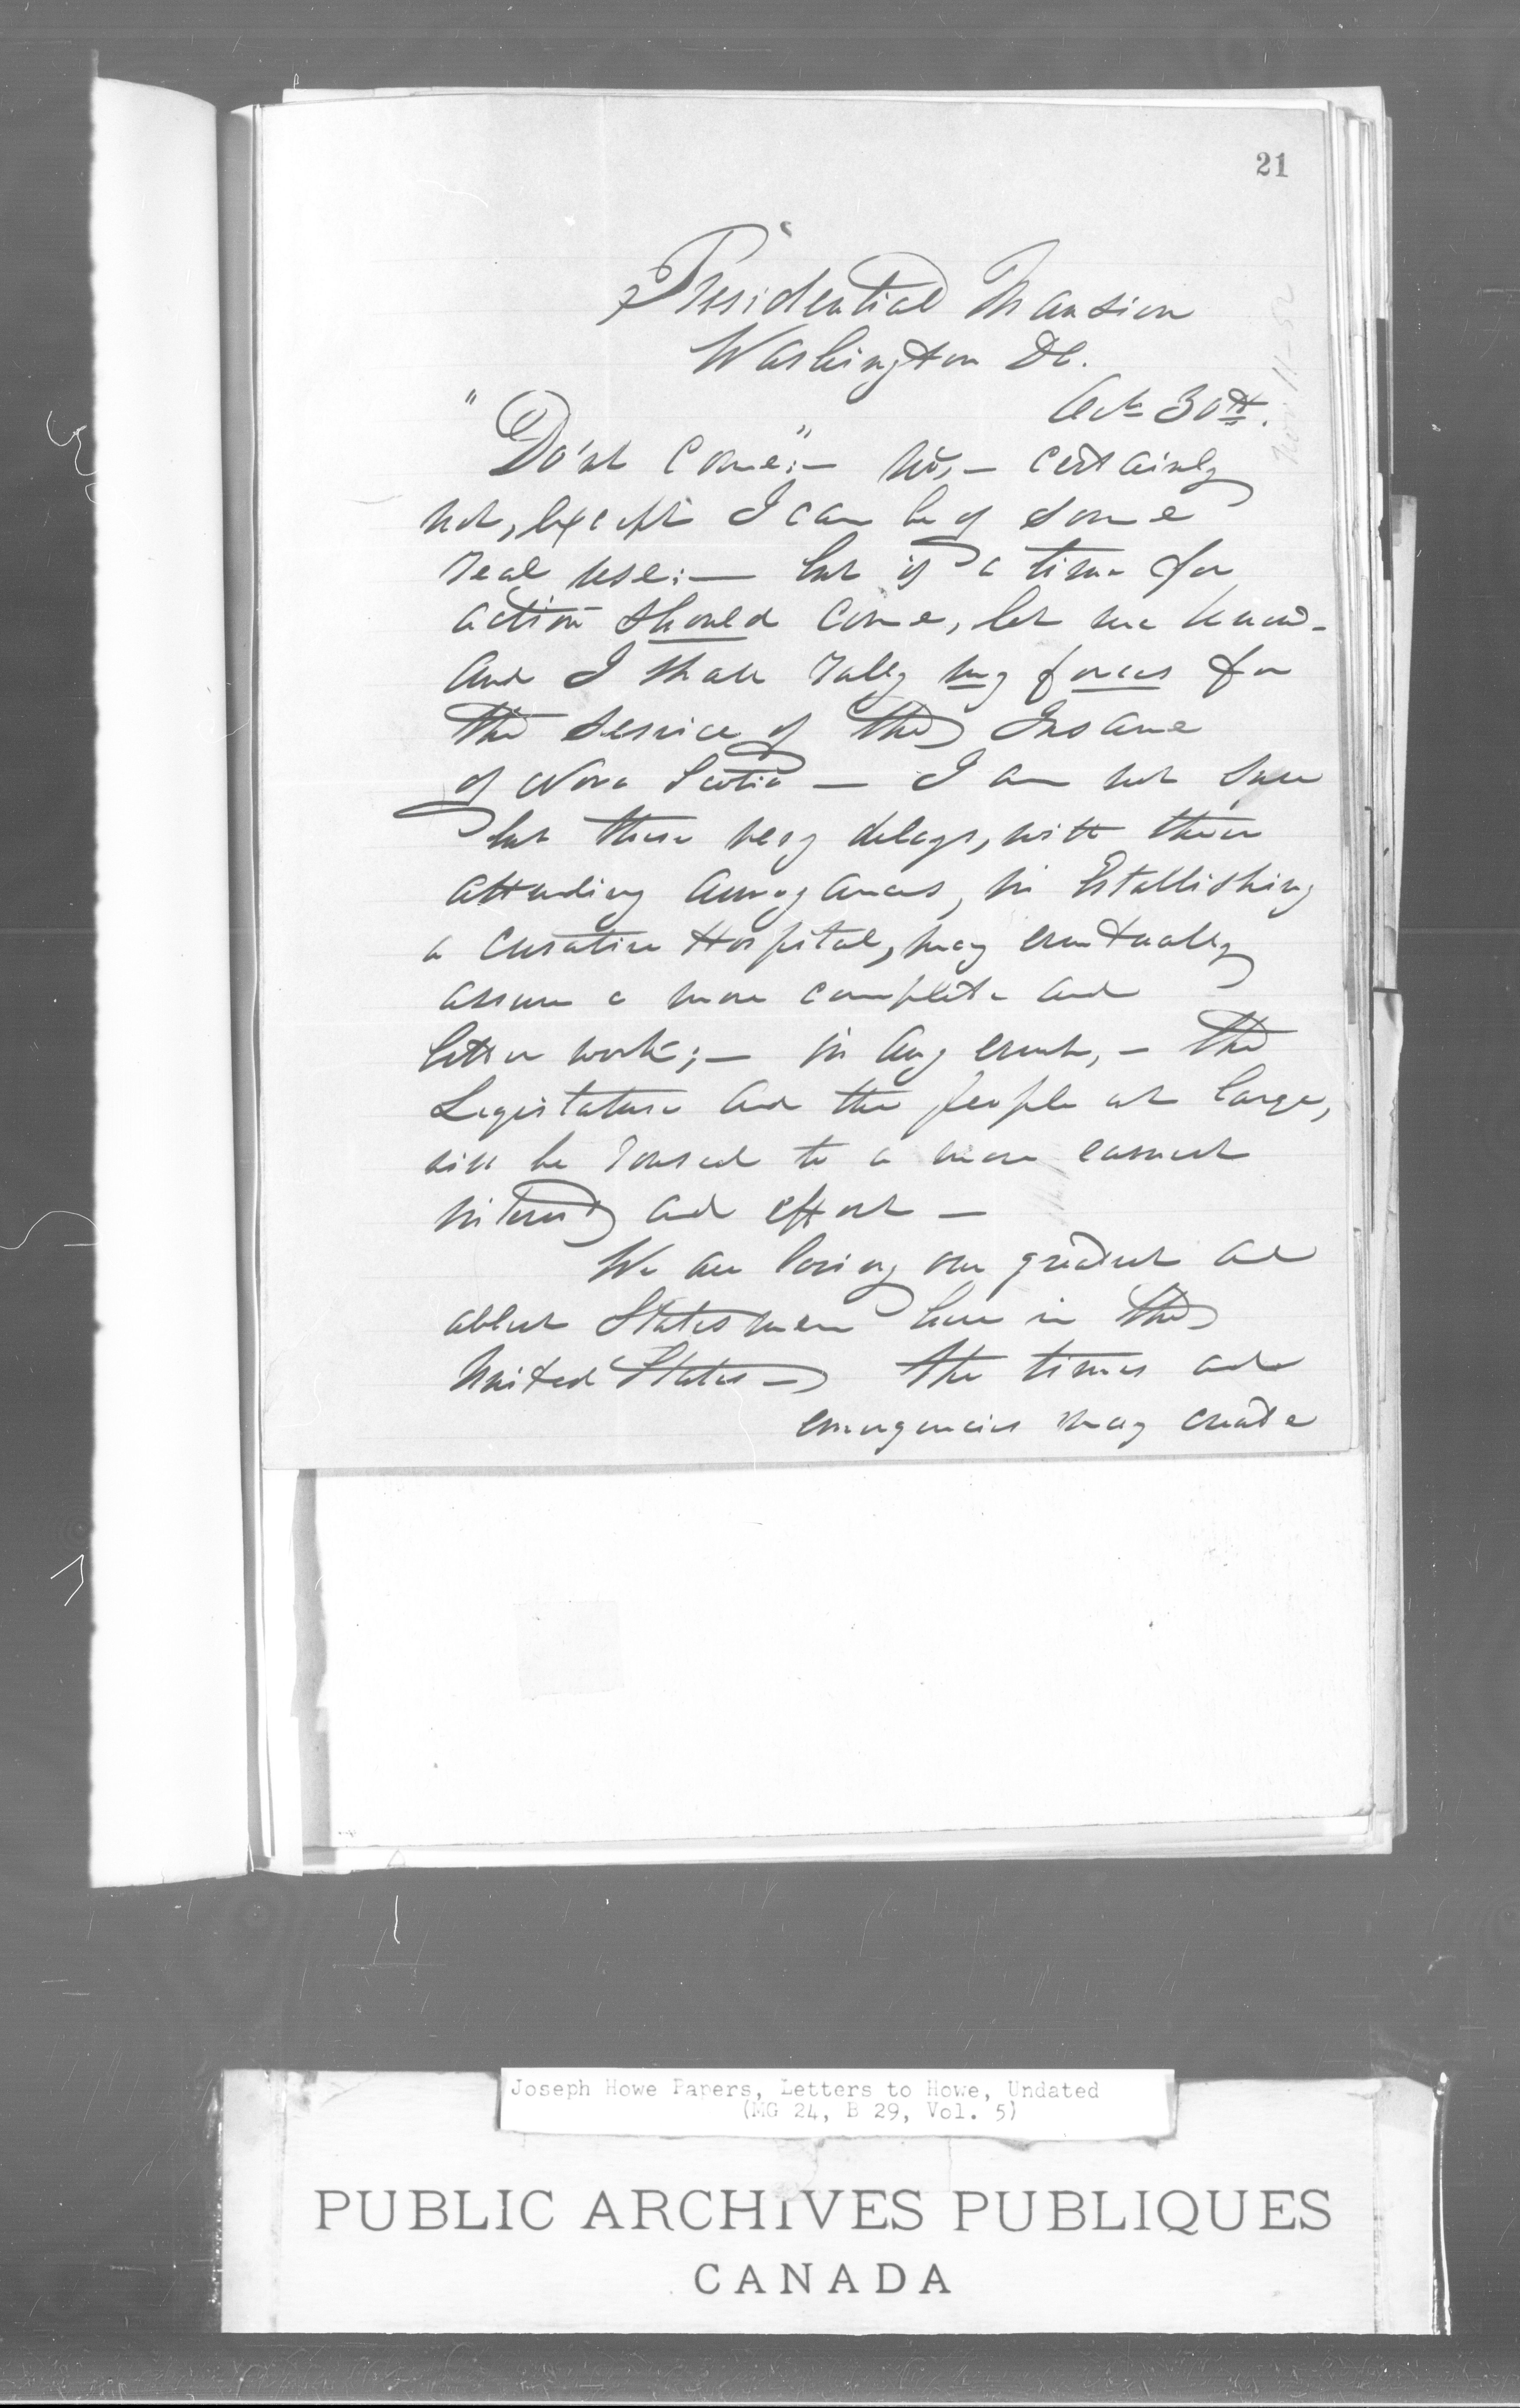 21
Presidential Mansion
Washington DC.
Oct 30th.
"Do'nt Come":— No,— certainly
not, except I can be of some
real use:— but if a time for
action should come, let me know—
and I shall rally my forces for
the service of the Insane
of Nova Scotia — I am not sure
but these very delays, with their
attending annoyances, in Establishing
a Curative Hospital, may eventually
assure a more complete and
better work;— in any event,— the
Legislature and the people at large,
will be roused to a more earnest
interest and effort —
We are losing our greatest and
ablest Statesmen here in the
United States — the times and
emergencies may create
Joseph Howe Papers, Letters to Howe, Undated
(MG 24, B 29, Vol. 5)
PUBLIC ARCHIVES PUBLIQUES
CANADA